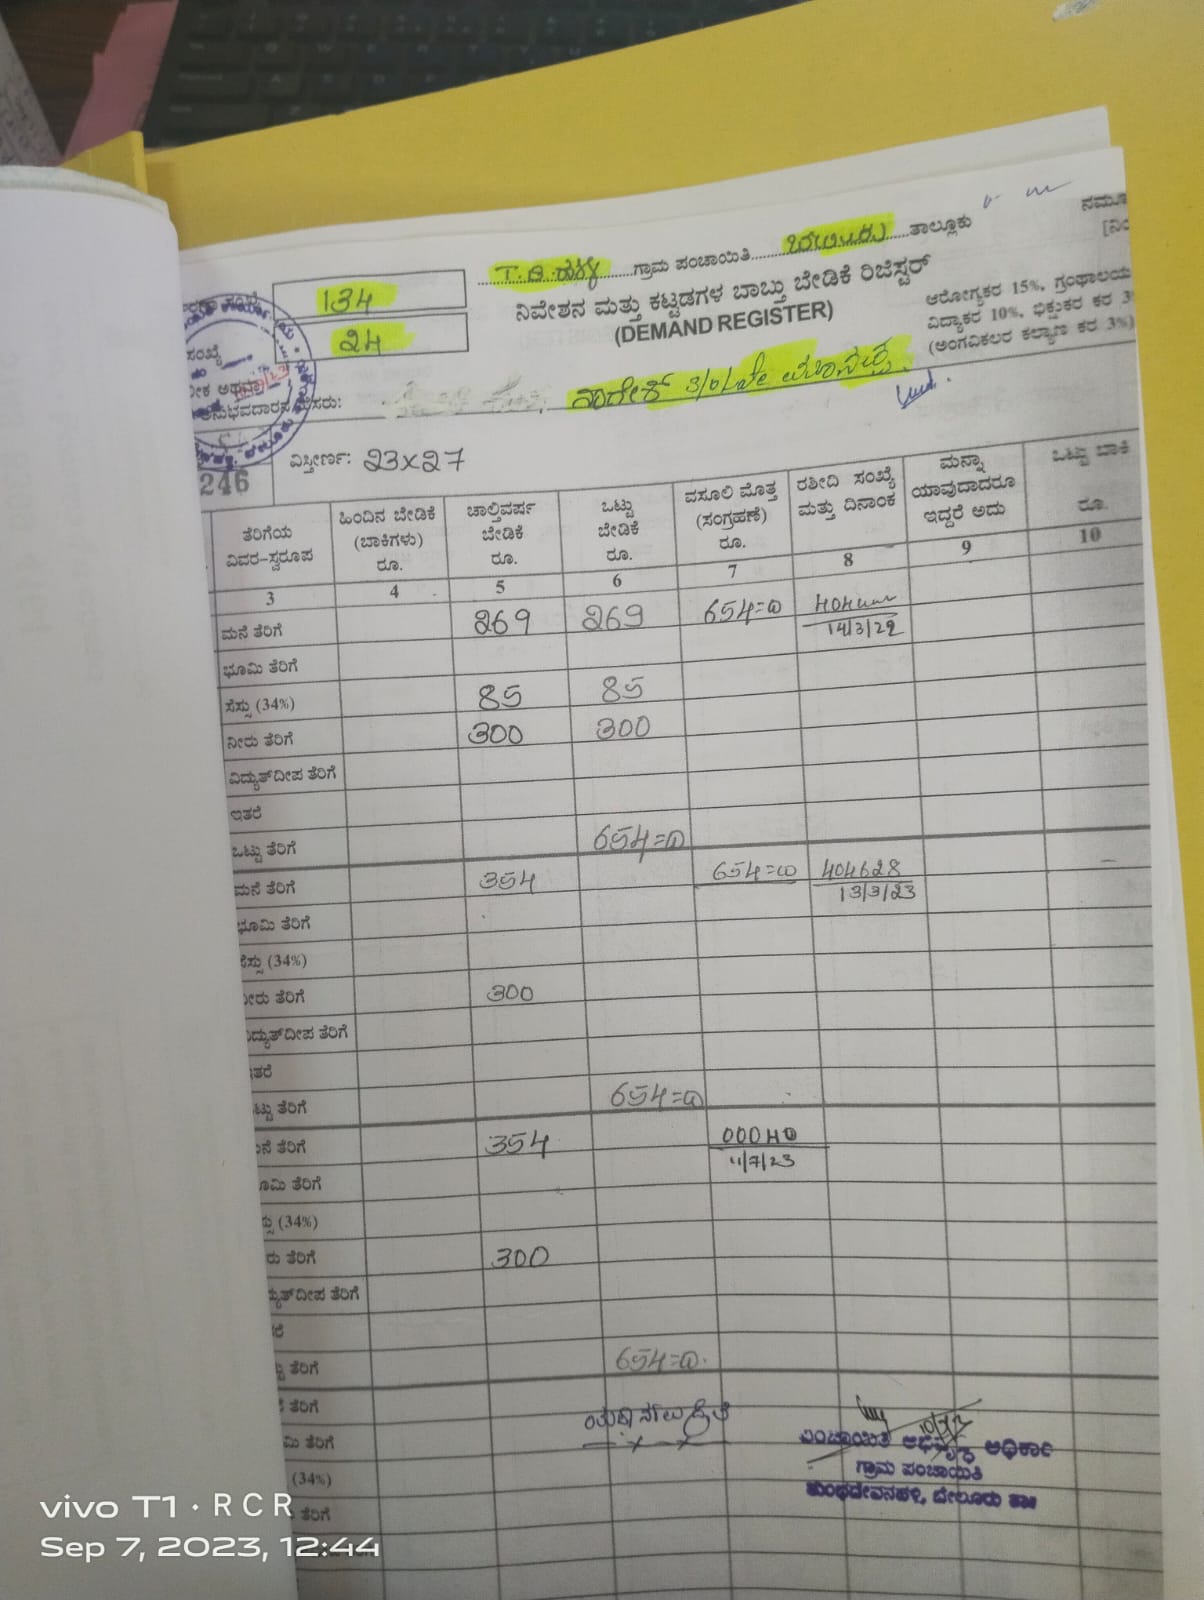 ನಮೂ
[ನಿಂ
T.B. ಹಳ್ಳಿ ಗ್ರಾಮ ಪಂಚಾಯಿತಿ ಬೇಲೂರು ತಾಲ್ಲೂಕು
134
24
ನಿವೇಶನ ಮತ್ತು ಕಟ್ಟಡಗಳ ಬಾಬ್ತು ಬೇಡಿಕೆ ರಿಜಿಸ್ಟರ್
(DEMAND REGISTER)
ಆರೋಗ್ಯಕರ 15%, ಗ್ರಂಥಾಲಯ
ವಿದ್ಯಾಕರ 10%, ಭಿಕ್ಷುಕರ ಕರ 3
(ಅಂಗವಿಕಲರ ಕಲ್ಯಾಣ ಕರ 3%)
ಸಂಖ್ಯೆ
ೀಕ ಅಥವಾ
ಅನುಭವದಾರನ ಹೆಸರು: s/o Late
246
ವಿಸ್ತೀರ್ಣ: 23x27
ತೆರಿಗೆಯ ವಿವರ-ಸ್ವರೂಪ ಹಿಂದಿನ ಬೇಡಿಕೆ (ಬಾಕಿಗಳು) ರೂ. ಚಾಲ್ತಿವರ್ಷ ಬೇಡಿಕೆ ರೂ. ಒಟ್ಟು ಬೇಡಿಕೆ ರೂ. ವಸೂಲಿ ಮೊತ್ತ (ಸಂಗ್ರಹಣೆ) ರೂ. ರಶೀದಿ ಸಂಖ್ಯೆ ಮತ್ತು ದಿನಾಂಕ ಮನ್ನಾ ಯಾವುದಾದರೂ ಇದ್ದರೆ ಅದು ಒಟ್ಟು ಬಾಕಿ ರೂ.
3 4 5 6 7 8 9 10
ಮನೆ ತೆರಿಗೆ 269 269 654=00
14/3/22
ಭೂಮಿ ತೆರಿಗೆ
ಸೆಸ್ಸು (34%) 85 85
ನೀರು ತೆರಿಗೆ 300 300
ವಿದ್ಯುತ್‌ದೀಪ ತೆರಿಗೆ
ಇತರೆ
ಒಟ್ಟು ತೆರಿಗೆ 654=00
ಮನೆ ತೆರಿಗೆ 354 654=00 404628
13/3/23
ಭೂಮಿ ತೆರಿಗೆ
ಸೆಸ್ಸು (34%)
ನೀರು ತೆರಿಗೆ 300
ವಿದ್ಯುತ್‌ದೀಪ ತೆರಿಗೆ
ತರೆ
ಟ್ಟು ತೆರಿಗೆ 654=00
ನೆ ತೆರಿಗೆ 354
11/7/23
ೂಮಿ ತೆರಿಗೆ
ಸ್ಸು (34%)
ರು ತೆರಿಗೆ 300
ದ್ಯುತ್‌ದೀಪ ತೆರಿಗೆ
ರೆ
ಟ್ಟು ತೆರಿಗೆ 654=00
ತೆರಿಗೆ
ಮಿ ತೆರಿಗೆ
(34%)
ತೆರಿಗೆ
ಪಂಚಾಯಿತಿ ಅಭಿವೃದ್ಧಿ ಅಧಿಕಾರಿ
ಗ್ರಾಮ ಪಂಚಾಯಿತಿ
ಬೇಲೂರು ತಾ॥
vivo T1 · RCR
Sep 7, 2023, 12:44